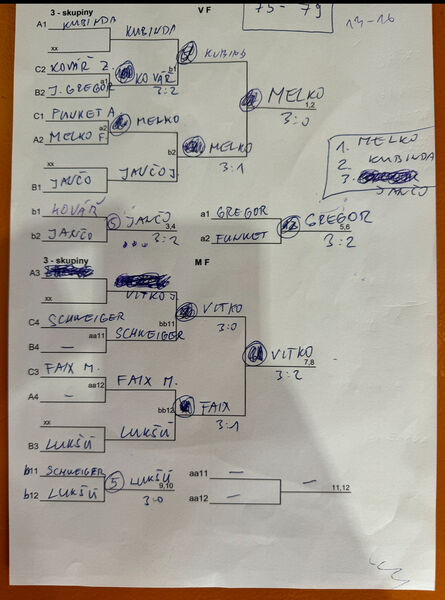 75 - 79
3 - skupiny V F
13-16
A1 KUBINDA
KUBINDA
xx
KUBINDA
C2 KOVÁŘ Z. b1
a1 KOVÁŘ
B2 J. GREGOR 3:2
MELKO
1,2
3:0
C1 PUNKET A
a2 MELKO
A2 MELKO F.
1. MELKO
2. KUBINDA
3. JANČO
b2 MELKO
3:1
JANČO J.
B1 JANČO
b1 KOVÁŘ
5 JANČO
3,4
b2 JANČO 3:2
a1 GREGOR
GREGOR
5,6
a2 FUNKET 3:2
3 - skupiny M F
A3
VITKO J.
xx
bb11 VITKO
3:0
C4 SCHWEIGER
aa11 SCHWEIGER
B4 –
VITKO
7,8
3:2
C3 FAIX M.
aa12 FAIX M.
A4 –
bb12 FAIX
3:1
xx
LUKŠÚ
B3 LUKŠÚ
b11 SCHWEIGER
5 LUKŠÚ
9,10
b12 LUKŠÚ 3:0
aa11 –
–
11,12
aa12 –